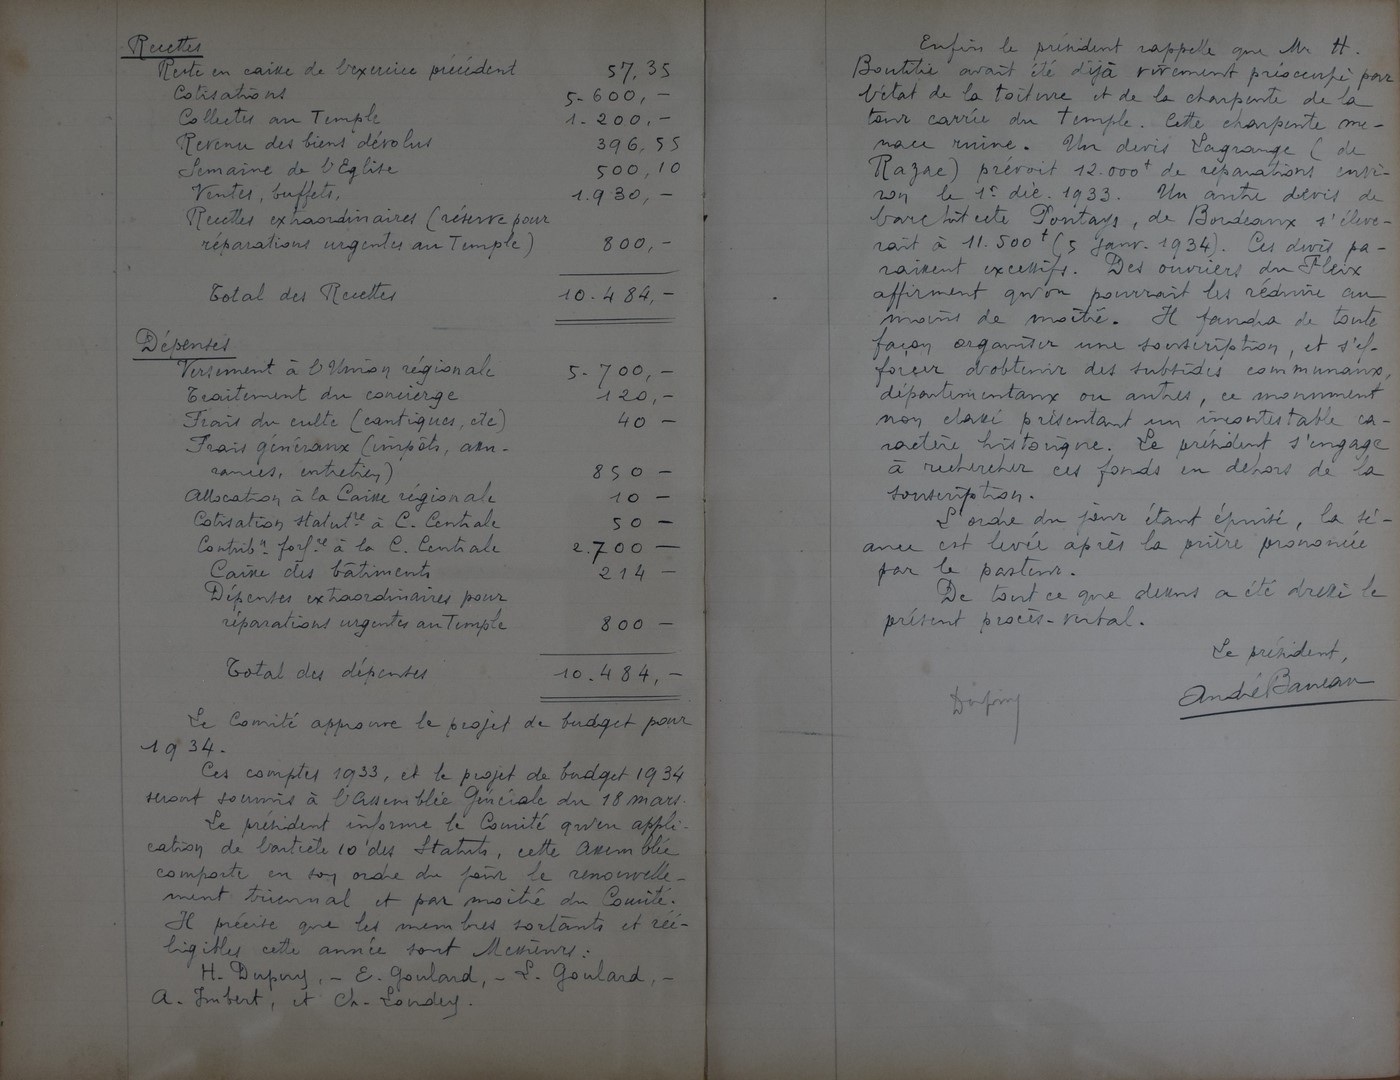 Recettes
Reste en caisse de l'exercice précédent 57,35
Cotisations 5.600,-
Collectes au Temple 1.200,-
Revenu des biens dévolus 396,55
Semaine de l'Eglise 500,10
Ventes, buffets, 1.930,-
Recettes extraordinaires (réserve pour
réparations urgentes au Temple) 800,-
Total des Recettes 10.484,-
Dépenses
Versement à l'Union régionale 5.700,-
Traitement du concierge 120,-
Frais du culte (cantiques, etc) 40 -
Frais généraux (impôts, assu-
rances, entretien) 850 -
Allocation à la Caisse régionale 10 -
Cotisation statutre à C. Centrale 50 -
Contribn forfre à la C. Centrale 2.700 -
Caisse des bâtiments 214 -
Dépenses extraordinaires pour
réparations urgentes au Temple 800 -
Total des dépenses 10.484,-
Le Comité approuve le projet de budget pour
1934.
Ces comptes 1933, et le projet de budget 1934
seront soumis à l'Assemblée Générale du 18 mars.
Le président informe le Comité qu'en appli-
cation de l'article 10 des Statuts, cette Assemblée
comporte en son ordre du jour le renouvelle-
ment triennal et par moitié du Comité.
Il précise que les membres sortants et réé-
ligibles cette année sont Messieurs :
H. Dupuy, - E. Goulard, - L. Goulard, -
A. Imbert, et Ch. Loudey.
Enfin le président rappelle que Mr H.
Boutitie avait été déjà vivement préoccupé par
l'état de la toiture et de la charpente de la
tour carrée du Temple. Cette charpente me-
nace ruine. Un devis Lagrange (de
Razac) prévoit 12.000f de réparations envi-
ron le 1er déc. 1933. Un autre devis de
l'architecte Pontays, de Bordeaux s'élève-
rait à 11.500f (5 janv. 1934). Ces devis pa-
raissent excessifs. Des ouvriers du Fleix
affirment qu'on pourrait les réduire au
moins de moitié. Il faudra de toute
façon organiser une souscription, et s'ef-
forcer d'obtenir des subsides communaux,
départementaux ou autres, ce monument
non classé présentant un incontestable ca-
ractère historique. Le président s'engage
à rechercher ces fonds en dehors de la
souscription.
L'ordre du jour étant épuisé, la sé-
ance est levée après la prière prononcée
par le pasteur.
De tout ce que dessus a été dressé le
présent procès-verbal.
Le président,
André Baneau
Dupuy